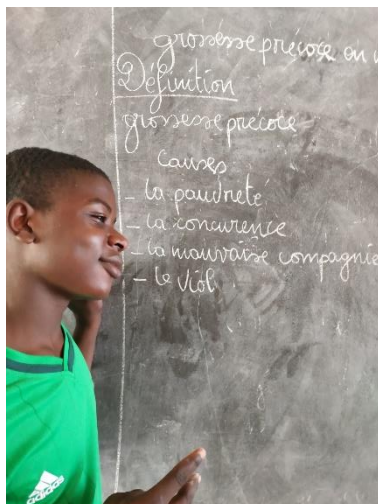 grossesse précoce en
Définition
grossesse précoce
causes
- la pauvreté
- la concurence
- la mauvaise compagnie
- le viol
adidas